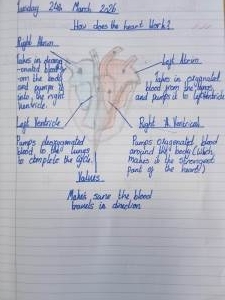 Tuesday 24th March 2026
How does the heart work?
Right Atrium
Takes in deoxyg
-enated blood
from the body
and pumps it
into the right
Ventricle.
Left Atrium
Takes in oxygenated
blood from the lungs
and pumps it to left Ventricle
Left Ventricle
Pumps deoxygenated
blood to the lungs
to complete the cycle.
Right Ventrical
Pumps oxygenated blood
around the body (which
makes it the strongest
part of the heart!)
Valves
Makes sure the blood
travels in direction